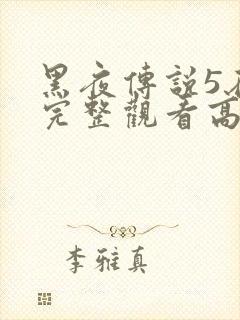 黑夜傳說5
完整觀看高
李雅真